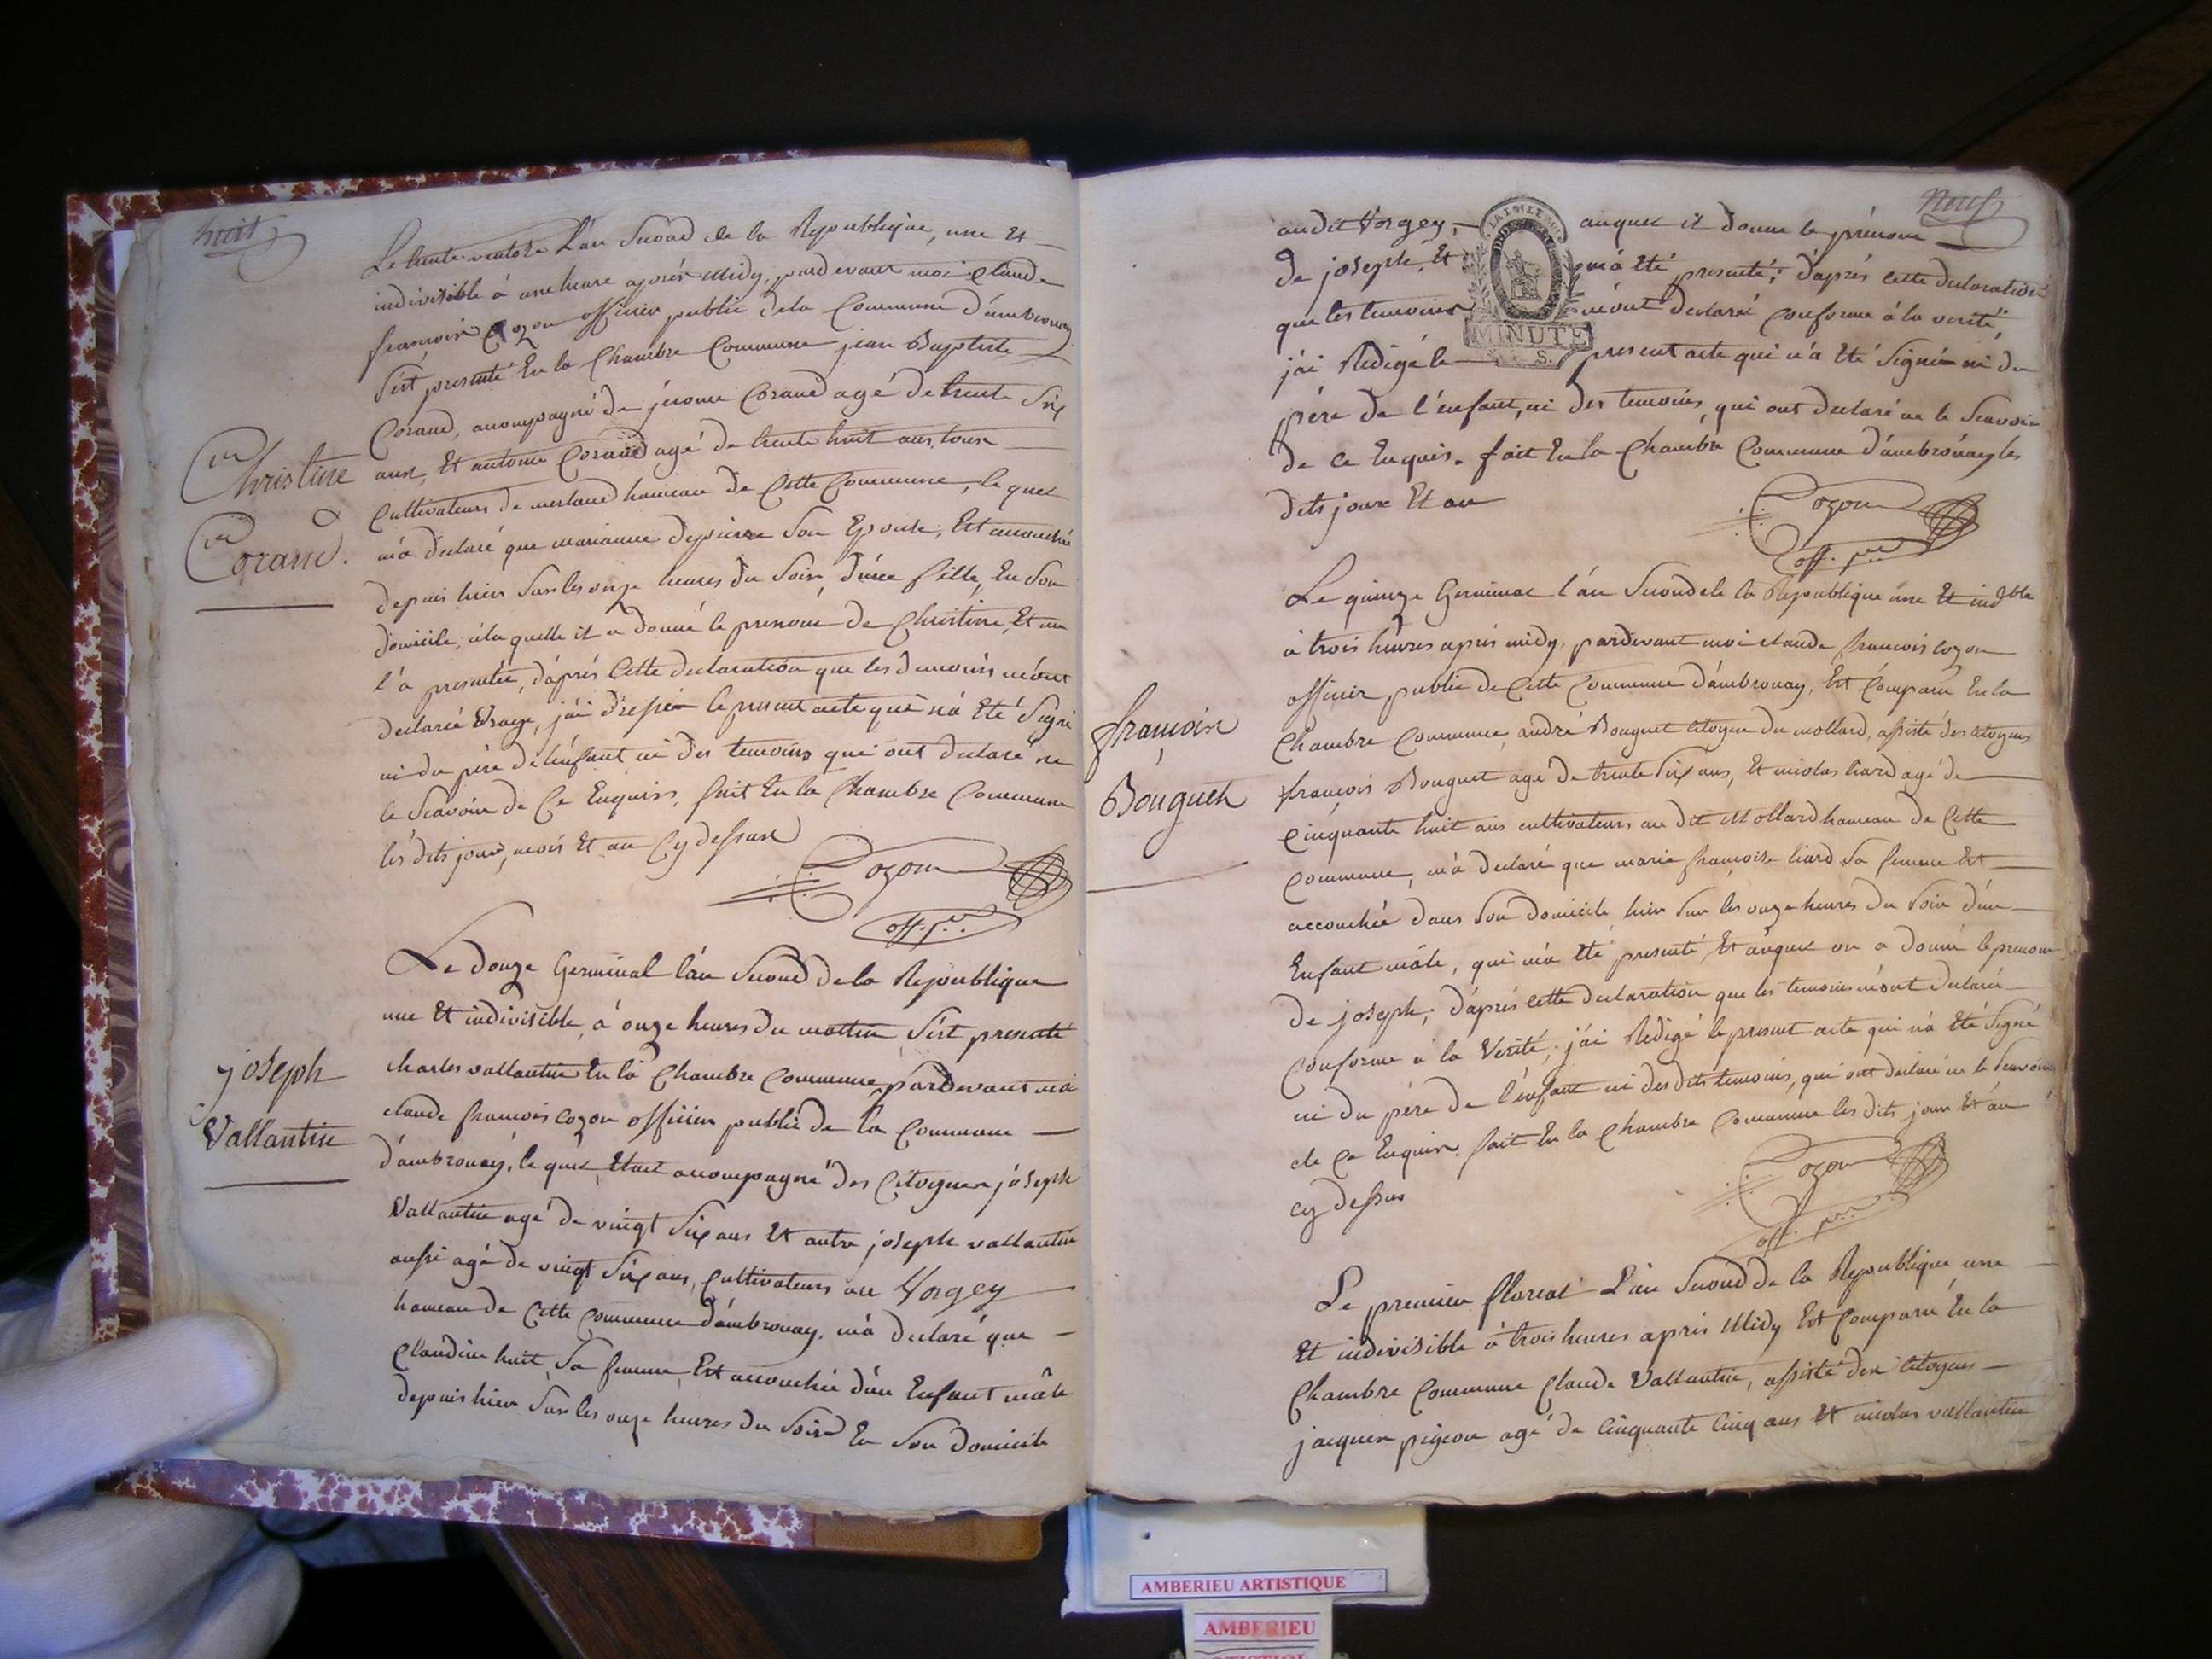 huit
Le trente ventose L'an Second de la Republique, une Et
indivisible à une heure après Midy, pardevant moi Claude
françois Cozon officier public dela Commune d'ambronay
s'est presenté En la Chambre Commune jean Baptiste
Corand, acompagné de jérome Corand agé de trente Six
Christine
Corand.
ans, Et antoine Corand agé de trente huit ans, tous
Cultivateurs de merland hameau de Cette Commune, le quel
m'a declaré que marianne depierre Son Epouse, Est acouchée
depuis hier Sur les onze heures du Soir, d'une fille, En Son
domicile, à la quelle il a donné le prenom de Christine, Et me
l'a presentée, d'après Cette declaration que les temoins m'ont
declaré Vraye, j'ai dressé le present acte qui n'a Eté Signé
ni du père de l'enfant ni des temoins qui ont declaré ne
le Scavoir de Ce Enquis, fait En la Chambre Commune
les dits jour, mois Et an Cy dessus
Cozon
off. p.er
Le douze Germinal l'an Second de la Republique
une Et indivisible, à onze heures du mattin S'est presenté
joseph
Vallantin
charles vallantin En la Chambre Commune, pardevant moi
claude françois cozon officier public de la Commune
d'ambronay, le quel Etait acompagné des Citoyens joseph
Vallantin agé de vingt Six ans Et autre joseph vallantin
aussi agé de vingt Six ans, Cultivateurs au Vorgey
hameau de Cette Commune d'ambronay, m'a declaré que
Claudine huit, Sa femme, Est acouchée d'un Enfant mâle
depuis hier Sur les onze heures du Soir En Son domicile
Neuf
au dit Vorgey, auquel il donne le prénom
de joseph, Et m'a Eté presenté; d'après cette declaration
que les temoins m'ont declaré conforme à la verité,
MINUTE
S.
j'ai Redigé le present acte qui n'a Eté Signé ni du
père de l'enfant, ni des temoins, qui ont declaré ne le Scavoir
de Ce Enquis. fait En la Chambre Commune d'ambronay les
dits jour Et an
Cozon
off. p.er
Le quinze Germinal l'an Second de la Republique une Et ind.ble
à trois heures après midy, pardevant moi claude françois cozon
officier public de Cette Commune d'ambronay, Est Comparu En la
françois
Bouguet
Chambre Commune, andré Bouguet Citoyen du mollard, assisté des Citoyens
françois Bouguet agé de trente Six ans, Et nicolas liard agé de
Cinquante huit ans cultivateurs au dit Mollard hameau de Cette
Commune, m'a declaré que marie françoise liard Sa femme Est
accouchée dans Son domicile hier Sur les onze heures du Soir d'un
Enfant mâle, qui m'a Eté presenté, Et auquel on a donné le prenom
de joseph; d'après cette declaration que les temoins m'ont declaré
Conforme à la Verité, j'ai Redigé le present acte qui n'a Eté Signé
ni du père de l'enfant ni des dits temoins, qui ont declaré ne le Scavoir
de Ce Enquis. fait En la Chambre Commune les dits jour Et an
cy dessus
Cozon
off. p.er
Le premier floreal L'an Second de la Republique une
Et indivisible à trois heures après Midy Est Comparu En la
Chambre Commune Claude Vallantin, assisté des Citoyens
jacques pigeon agé de Cinquante Cinq ans Et nicolas vallantin
AMBERIEU ARTISTIQUE
AMBERIEU